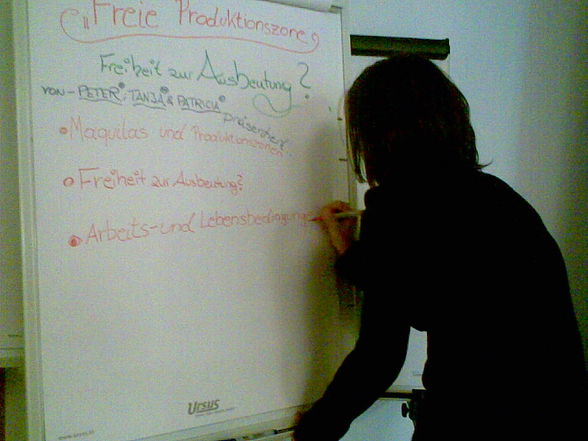 „Freie Produktionszone
Freiheit zur Ausbeutung?
von - PETER, TANJA & PATRICIA
präsentiert...
• Maquilas und Produktionszonen
• Freiheit zur Ausbeutung?
• Arbeits- und Lebensbedingung
URSUS
www.ursus.at